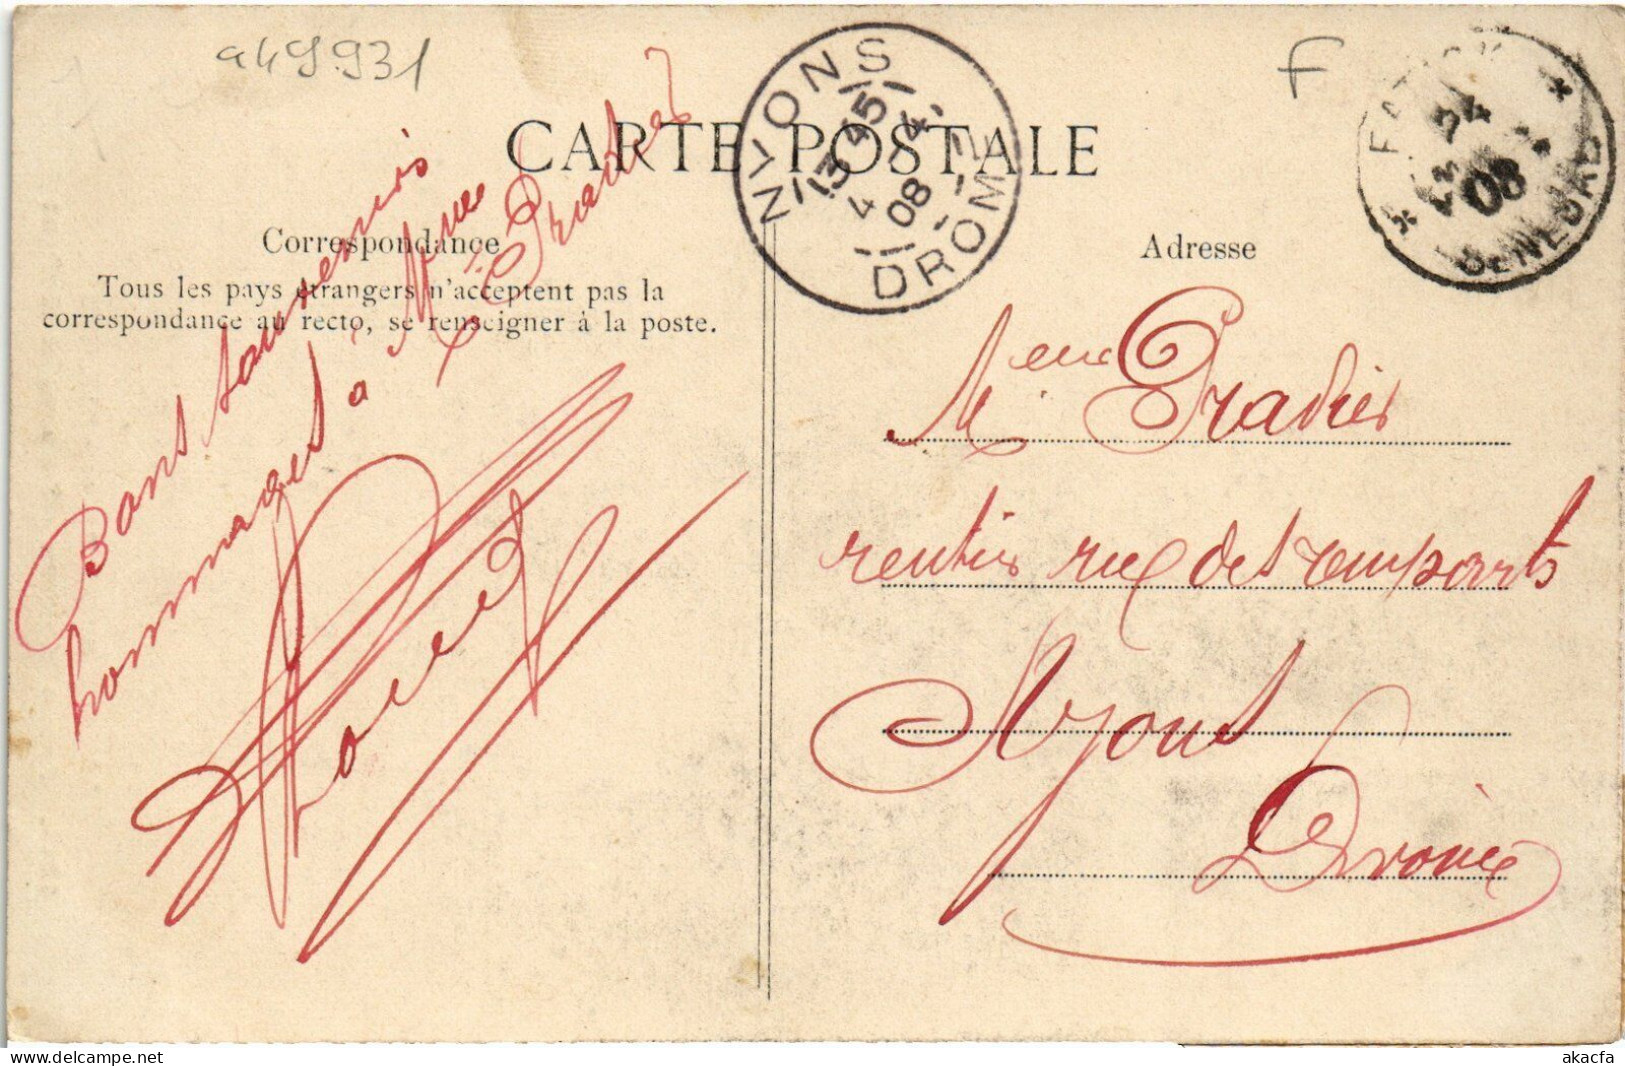 a49931
F
CARTE POSTALE
NYONS
13 45
4 - 4
08
DROME
FATICK
24
08
SENEGAL
Correspondance
Tous les pays étrangers n'acceptent pas la
correspondance au recto, se renseigner à la poste.
Adresse
Bons souvenirs
hommages à Mme
Pradier
Mme Pradier
rentier rue des remparts
Nyons
Drome
www.delcampe.net
akacfa